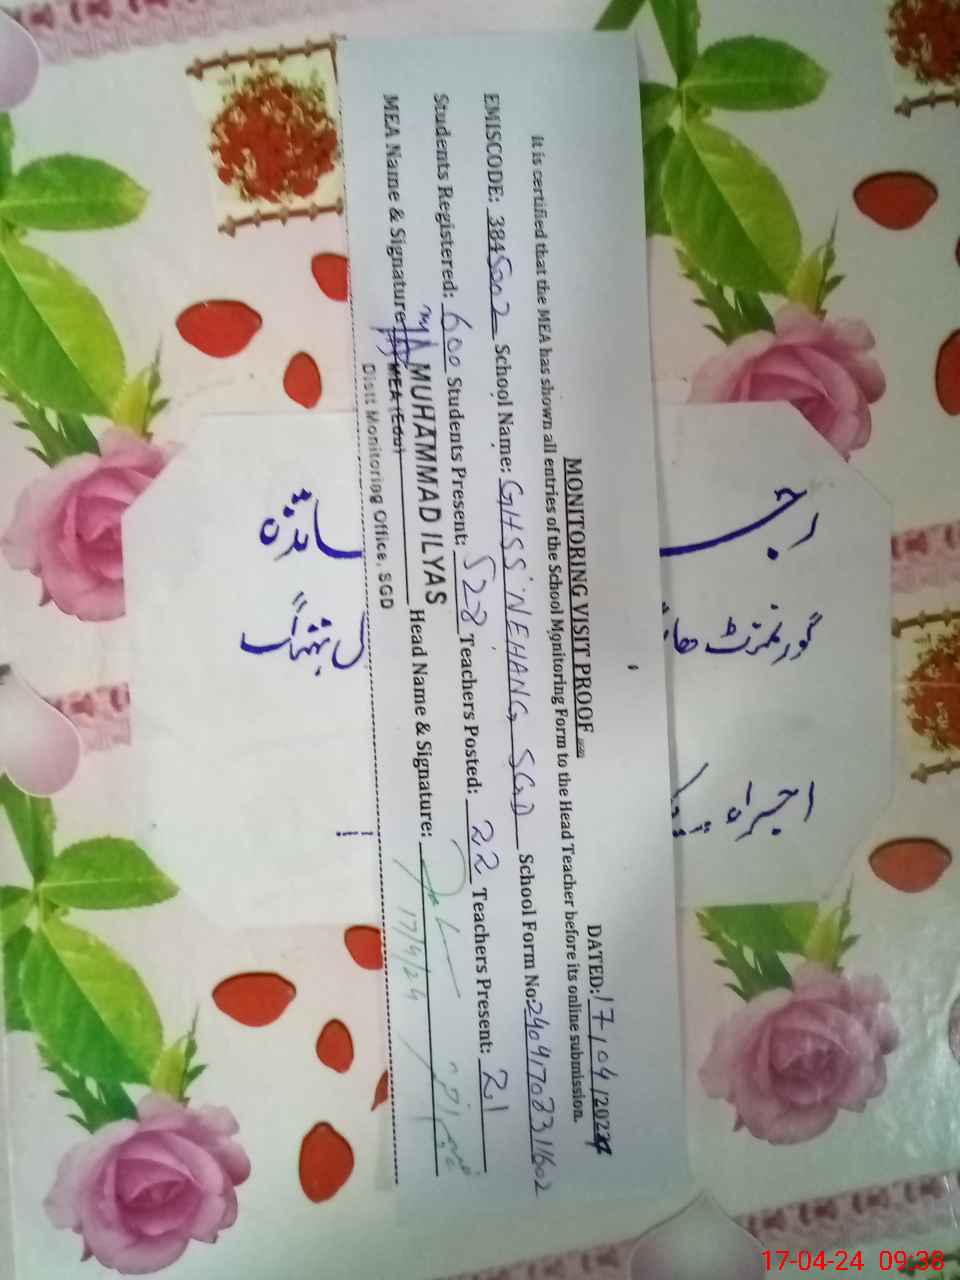 MONITORING VISIT PROOF
DATED: 17/04/2024
It is certified that the MEA has shown all entries of the School Monitoring Form to the Head Teacher before its online submission.
EMISCODE: 3845002 School Name: GHSS NEHANG SGD School Form No: 2404170831602
Students Registered: 600 Students Present: 528 Teachers Posted: 22 Teachers Present: 21
MEA Name & Signature MUHAMMAD ILYAS Head Name & Signature:
MEA (Edu)
17/4/24
Distt Monitoring Office, SGD
گورنمنٹ
17-04-24 09:38